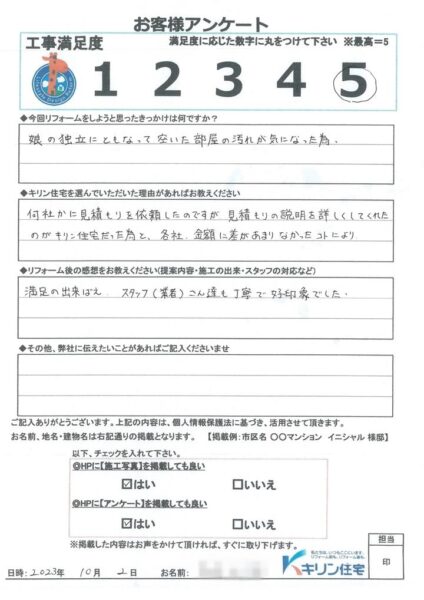 お客様アンケート
工事満足度
満足度に応じた数字に丸をつけて下さい ※最高＝5
1 2 3 4 5
◆今回リフォームをしようと思ったきっかけは何ですか？
娘の独立にともなって空いた部屋の汚れが気になった為．
◆キリン住宅を選んでいただいた理由があればお教えください
何社かに見積もりを依頼したのですが 見積もりの説明を詳しくしてくれた
のがキリン住宅だった為と、各社、金額に差があまりなかったコトにより
◆リフォーム後の感想をお教えください(提案内容・施工の出来・スタッフの対応など)
満足の出来ばえ． スタッフ(業者)さん達も丁寧で好印象でした．
◆その他、弊社に伝えたいことがあればご記入くださいませ
ご記入ありがとうございます。上記の内容は、個人情報保護法に基づき、活用させて頂きます。
お名前、地名・建物名は右記通りの掲載となります。 【掲載例：市区名 〇〇マンション イニシャル 様邸】
以下、チェックを入れて下さい。
◎HPに【施工写真】を掲載しても良い
☑はい □いいえ
◎HPに【アンケート】を掲載しても良い
☑はい □いいえ
※掲載した内容はお声をかけて頂ければ、すぐに取り下げます。
担当
印
キリン住宅
日時：2023年 10月 2日 お名前：